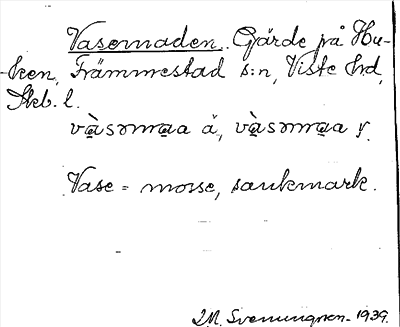 Vasemaden. Gärde på Hu-
-ken, Främmestad s:n, Viste hrd,
Skb. l.
và̱sɷma̱a å, và̱sɷma̱a y.
Vase = mosse, sankmark.
Svenungsson - 1939.